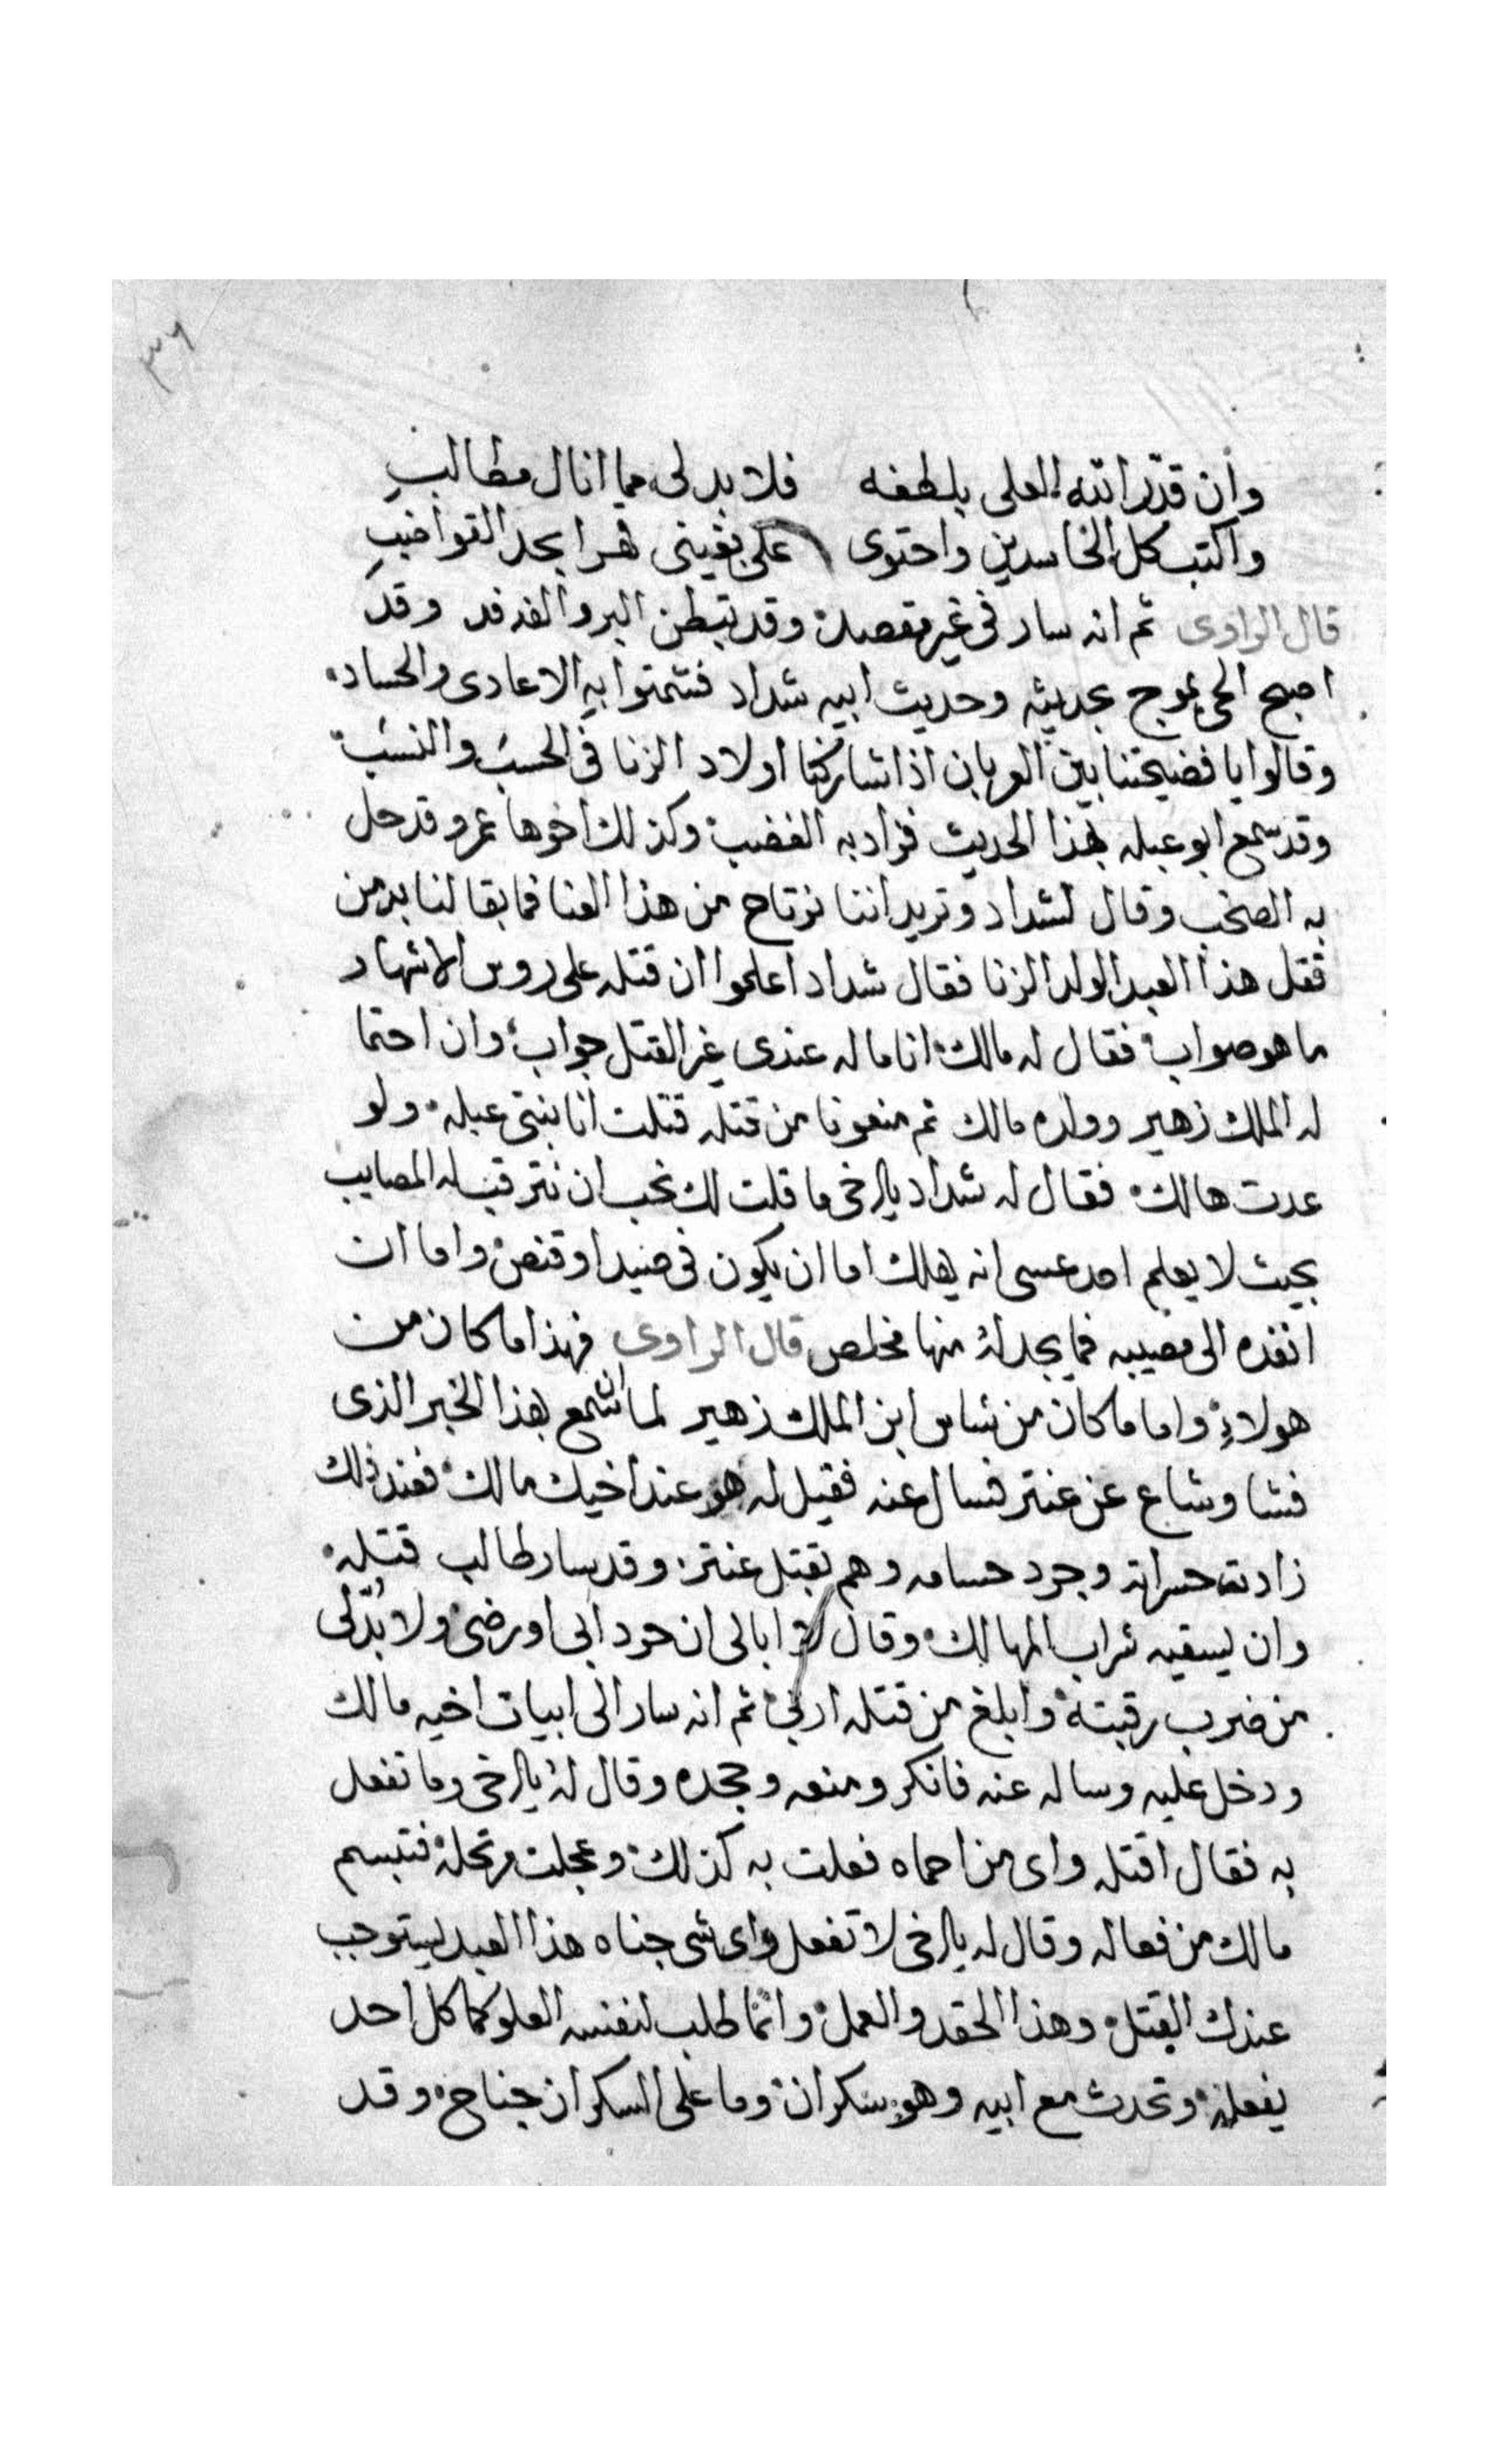 ٣٦
وان قدّر الله العلى بلطفه فلا بد لى مما انال مطالبِ
واكتب كل الحاسدين واحتوى على بغيتى قهرا بحد القواضبِ
قال الراوى ثم انه سار فى غير مقصده وقد تبطن البر والفدفد وقد
اصبح الحى يموج بحديثه وحديث ابيه شداد فشمتوا به الاعادى والحساد
وقالوا يا فضيحتنا بين العربان اذا شاركنا اولاد الزنا فى الحسب والنسب
وقد سمع ابو عبله بهذا الحديث فزاد به الغضب وكذلك اخوها عمرو قد حل
به الصخب وقال لشداد وتريد اننا نرتاح من هذا العنا فما بقا لنا بد من
قتل هذا العبد الولد الزنا فقال شداد اعلموا ان قتله على روس الاشهاد
ما هو صواب فقال له مالك انا ما له عندى غير القتل جواب وان احتما
له الملك زهير وولده مالك ثم منعونا من قتله قتلت انا بنتى عبله ولو
عدت هالك فقال له شداد يا اخى ما قلت لك نحب ان نترقب له المصايب
بحيث لا يعلم احد عسى انه يهلك اما ان يكون فى صيد او قنص واما ان
انفذه الى مصيبه فما يجد له منها مخلص قال الراوى فهذا ما كان من
هولاء واما ما كان من شاس ابن الملك زهير لما ان سمع بهذا الخبر الذى
فشا وشاع عن عنتر فسال عنه فقيل له هو عند اخيك مالك فعند ذلك
زادت حسراته وجرد حسامه وهم بقتل عنتر وقد سار طالب قتله
وان يسقيه شراب المهالك وقال لا ابالى ان حرد ابى او رضى ولا بُدّ لى
من ضرب رقبته وابلغ من قتله اربى ثم انه سار الى ابيات اخيه مالك
ودخل عليه وساله عنه فانكر ومنعه وجحده وقال له يا اخى وما تفعل
به فقال اقتله واى من احماه فعلت به كذلك وعجلت مرتحله فتبسم
مالك من فعاله وقال له يا اخى لا تفعل واى شى جناه هذا العبد ليستوجب
عندك القتل وهذا الحقد والعمل وانما طلب لنفسه العلو كما كل احد
يفعله وتحدث مع ابيه وهو سكران وما على السكران جناح وقد